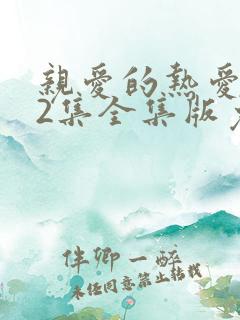 親愛的熱愛
2集全集版
伴卿一醉
未任同意禁止转载